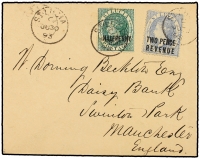 ST. LUCIA
HALFPENNY
TWO PENCE
REVENUE
W. Dorning Beckton Esq
Daisy Bank
Swinton Park
Manchester
England.